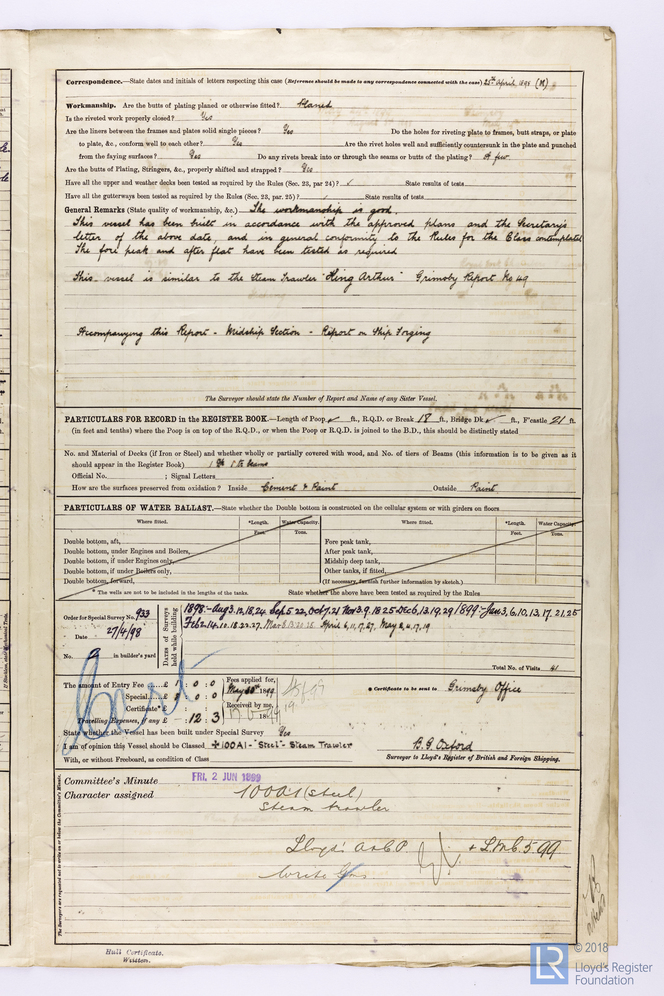 Correspondence.—State dates and initials of letters respecting this case (Reference should be made to any correspondence connected with the case) 25th April, 1898 (M)
Workmanship. Are the butts of plating planed or otherwise fitted? Planed
Is the riveted work properly closed? Yes
Are the liners between the frames and plates solid single pieces? Yes Do the holes for riveting plate to frames, butt straps, or plate
to plate, &c., conform well to each other? Yes Are the rivet holes well and sufficiently countersunk in the plate and punched
from the faying surfaces? Yes Do any rivets break into or through the seams or butts of the plating? A few
Are the butts of Plating, Stringers, &c., properly shifted and strapped? Yes
Have all the upper and weather decks been tested as required by the Rules (Sec. 23, par 24)? ✓ State results of tests
Have all the gutterways been tested as required by the Rules (Sec. 23, par. 25)? ✓ State results of tests
General Remarks (State quality of workmanship, &c.) The workmanship is good.
This vessel has been built in accordance with the approved plans and the Secretary's
letter of the above date, and in general conformity to the Rules for the Class contemplated
The fore peak and after flat have been tested is required
This vessel is similar to the Steam Trawler "King Arthur" Grimsby Report No 49
Accompanying this Report - Midship Section - Report on Ship Forging
The Surveyor should state the Number of Report and Name of any Sister Vessel.
PARTICULARS FOR RECORD in the REGISTER BOOK.—Length of Poop ✓ ft., R.Q.D. or Break 18 ft., Bridge Dk ✓ ft., F'castle 21 ft.
(in feet and tenths) where the Poop is on top of the R.Q.D., or when the Poop or R.Q.D. is joined to the B.D., this should be distinctly stated
No. and Material of Decks (if Iron or Steel) and whether wholly or partially covered with wood, and No. of tiers of Beams (this information is to be given as it
should appear in the Register Book) 1 Dk 1 tr beams
Official No. ; Signal Letters
How are the surfaces preserved from oxidation? Inside Cement & Paint Outside Paint
PARTICULARS OF WATER BALLAST.—State whether the Double bottom is constructed on the cellular system or with girders on floors
Where fitted. *Length. Water Capacity. Where fitted. *Length. Water Capacity.
Feet. Tons. Feet. Tons.
Double bottom, aft, Fore peak tank,
Double bottom, under Engines and Boilers, After peak tank,
Double bottom, if under Engines only, Midship deep tank,
Double bottom, if under Boilers only, Other tanks, if fitted,
Double bottom, forward, (If necessary, furnish further information by sketch.)
* The wells are not to be included in the lengths of the tanks. State whether the above have been tested as required by the Rules
Order for Special Survey No. 933
Date 27/4/98
No. 9 in builder's yard
DATES of Surveys held while building
1898:- Aug 3.12,18,24 Sep 5 22, Oct 7,21 Nov 3.9,18 25 Dec 6,13,19,29 /1899:- Jan 3,6,10,13,17,21,25
Feb 2.14.10.18.22.27, Mar 6.13.20.28 April 6,11,17,27, May 2,4,17,19
Total No. of Visits 41
The amount of Entry Fee £ 1 : 0 : 0
Special £ : 0 : 0
Certificate* £ : :
Travelling Expenses, if any £ : 12 : 3
Fees applied for,
May 30th 1899
Received by me,
* Certificate to be sent to Grimsby Office
State whether the Vessel has been built under Special Survey Yes
I am of opinion this Vessel should be Classed +100A1 - "Steel" - Steam Trawler
With, or without Freeboard, as condition of Class
B. G. Oxford
Surveyor to Lloyd's Register of British and Foreign Shipping.
The Surveyors are requested not to write on or below the Committee's Minute.
Committee's Minute FRI. 2 JUN 1899
Character assigned 100A1 (Steel)
Steam trawler
Lloyd's A & C P. + L.M.C. 5.99
Hull Certificate.
Written.
© 2018
LR
Lloyd's Register
Foundation